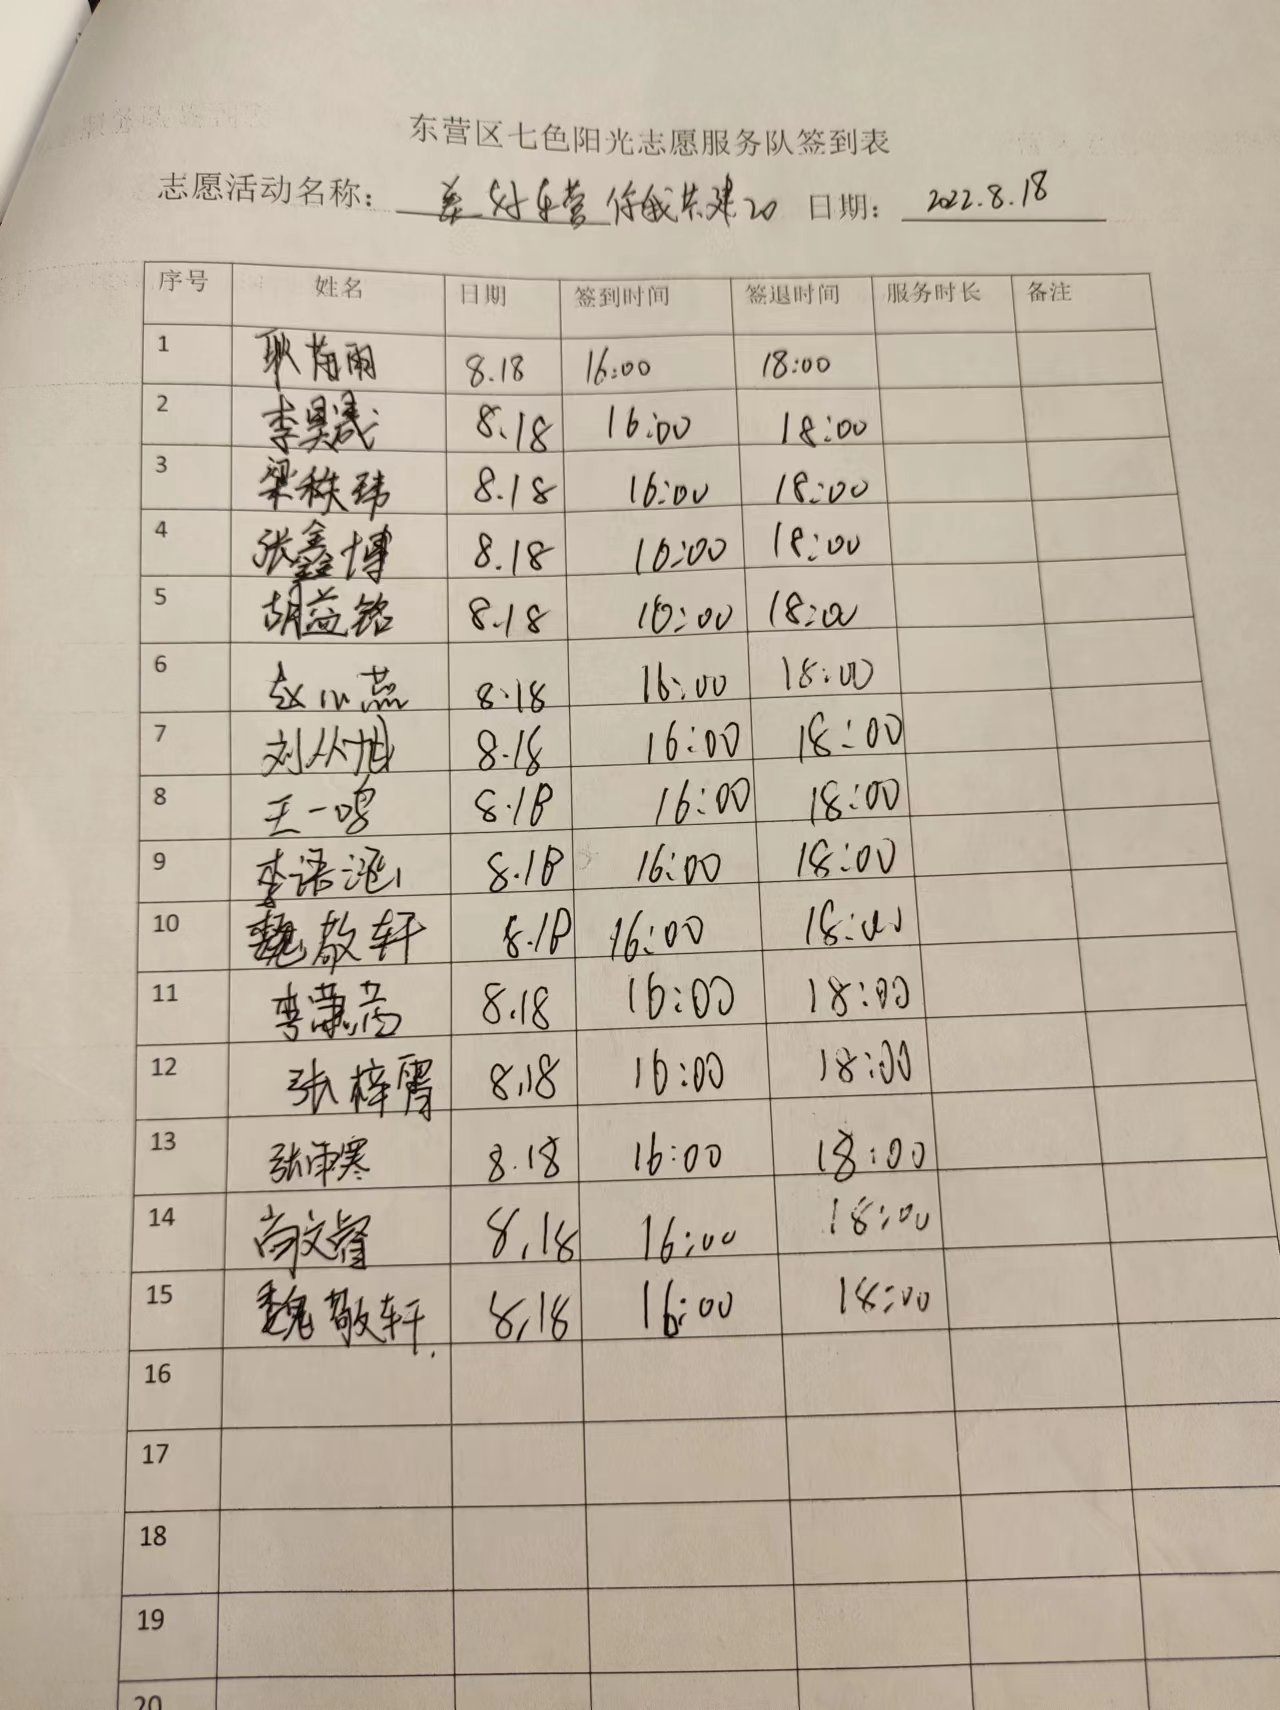 东营区七色阳光志愿服务队签到表
志愿活动名称： 美好东营 你我共建20 日期： 2022.8.18
序号 姓名 日期 签到时间 签退时间 服务时长 备注
1 耿 雨 8.18 16:00 18:00
2 李昊晟 8.18 16:00 18:00
3 梁秩玮 8.18 16:00 18:00
4 张鑫博 8.18 16:00 18:00
5 胡益铭 8.18 16:00 18:00
6 赵小燕 8.18 16:00 18:00
7 刘从旭 8.18 16:00 18:00
8 王一鸣 8.18 16:00 18:00
9 李语涵 8.18 16:00 18:00
10 魏敬轩 8.18 16:00 18:00
11 李 8.18 16:00 18:00
12 张梓霄 8.18 16:00 18:00
13 张雨寒 8.18 16:00 18:00
14 尚文睿 8.18 16:00 18:00
15 魏敬轩 8.18 16:00 18:00
16
17
18
19
20